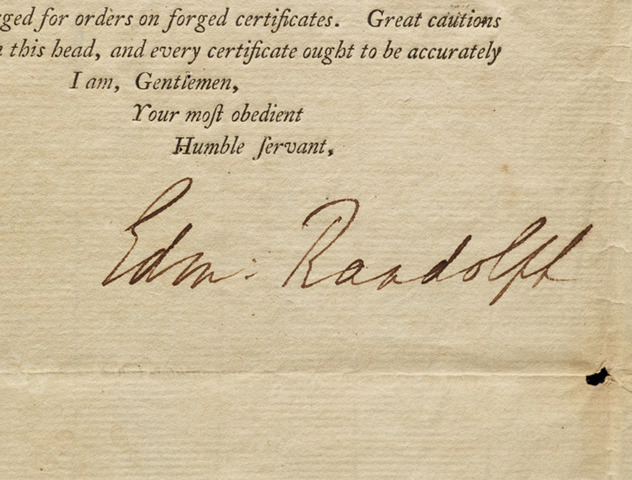 ged for orders on forged certificates. Great cautions
this head, and every certificate ought to be accurately
I am, Gentlemen,
Your moſt obedient
Humble ſervant,
Edm: Randolph